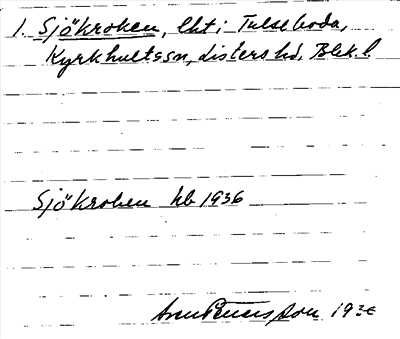 1. Sjökroken, lht i Tulseboda,
Kyrkhultssn, Listers hd, Blek. l.
Sjökroken hb 1936
Sven Benson 1936